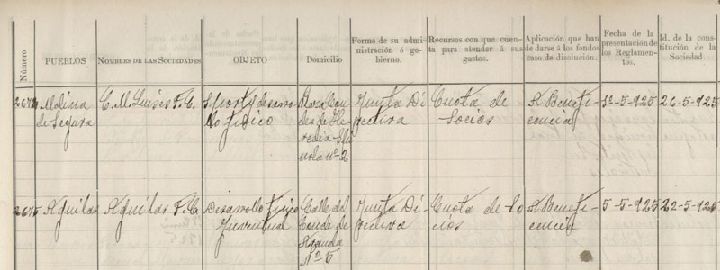 Número
PUEBLOS
NOMBRES DE LAS SOCIEDADES
OBJETO
Domicilio
Forma de su admi-
nistración ó go-
bierno.
Recursos con que cuen-
ta para atender á sus
gastos.
Aplicación que han
de darse á los fondos
caso de disolución.
Fecha de la
presentación de
los Reglamen-
tos.
Id. de la cons-
titución de la
Sociedad
Molina
de Segura
F. C.
Junta Di-
rectiva
Cuota de
socios
A Benefi-
cencia
5-925
5-925
2675
Aguilas
Aguilas F. C.
Desarrollo físico
Calle del
Conde de
Aranda
Nº 6
Junta Di-
rectiva
Cuota de so
cios
A Benefi-
cencia
5-5-925
22-5-925